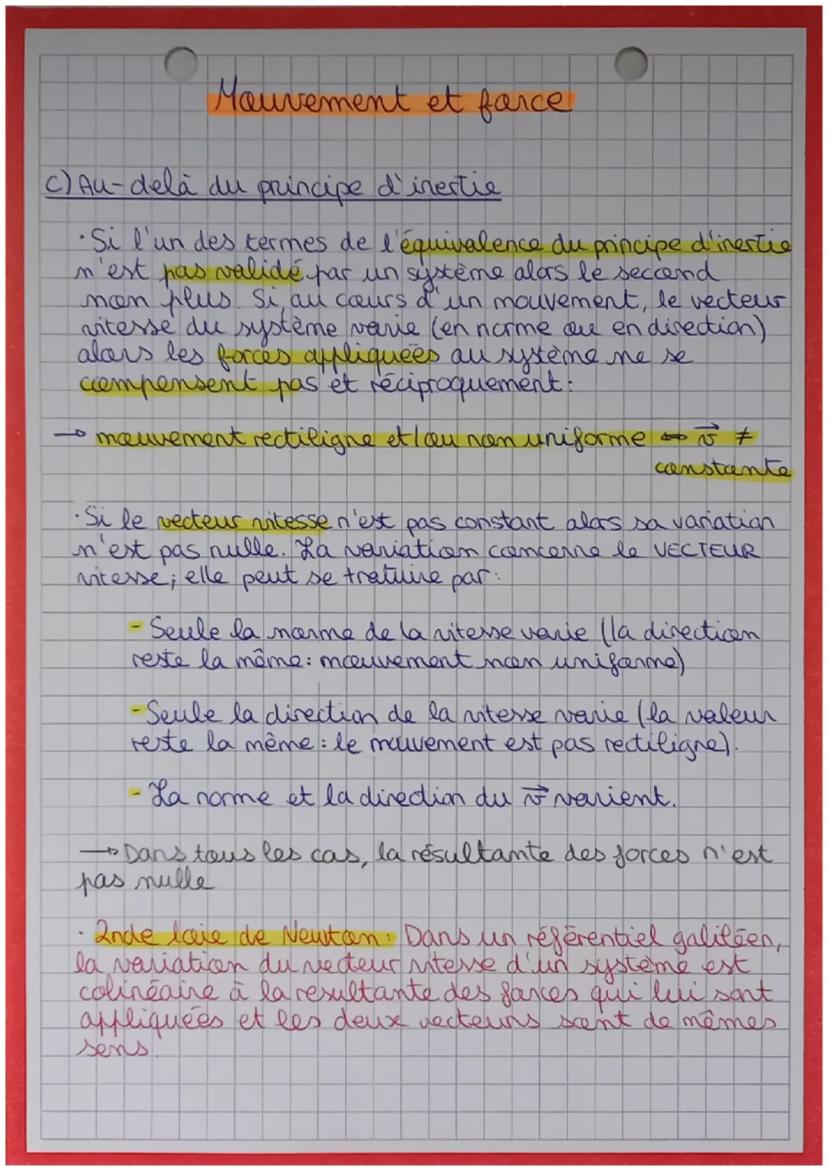 Mouvement et force
c) Au-delà du principe d'inertie
· Si l'un des termes de l'équivalence du principe d'inertie
n'est pas validé par un système alors le seccond
non plus. Si au cours d'un mouvement, le vecteur
vitesse du système varie (en norme ou en direction)
alors les forces appliquées au système ne se
compensent pas et réciproquement :
→ mouvement rectiligne et/ou non uniforme ⇔ v⃗ ≠
constante
· Si le vecteur vitesse n'est pas constant alors sa variation
n'est pas nulle. La variation concerne le VECTEUR
vitesse ; elle peut se tratuire par :
- Seule la norme de la vitesse varie (la direction
reste la même : mouvement non uniforme)
- Seule la direction de la vitesse varie (la valeur
reste la même : le mouvement est pas rectiligne).
- La norme et la direction du v⃗ varient.
→ Dans tous les cas, la résultante des forces n'est
pas nulle
· 2nde loie de Newton : Dans un référentiel galiléen,
la variation du vecteur vitesse d'un système est
colinéaire à la resultante des forces qui lui sont
appliquées et les deux vecteurs sont de mêmes
sens.